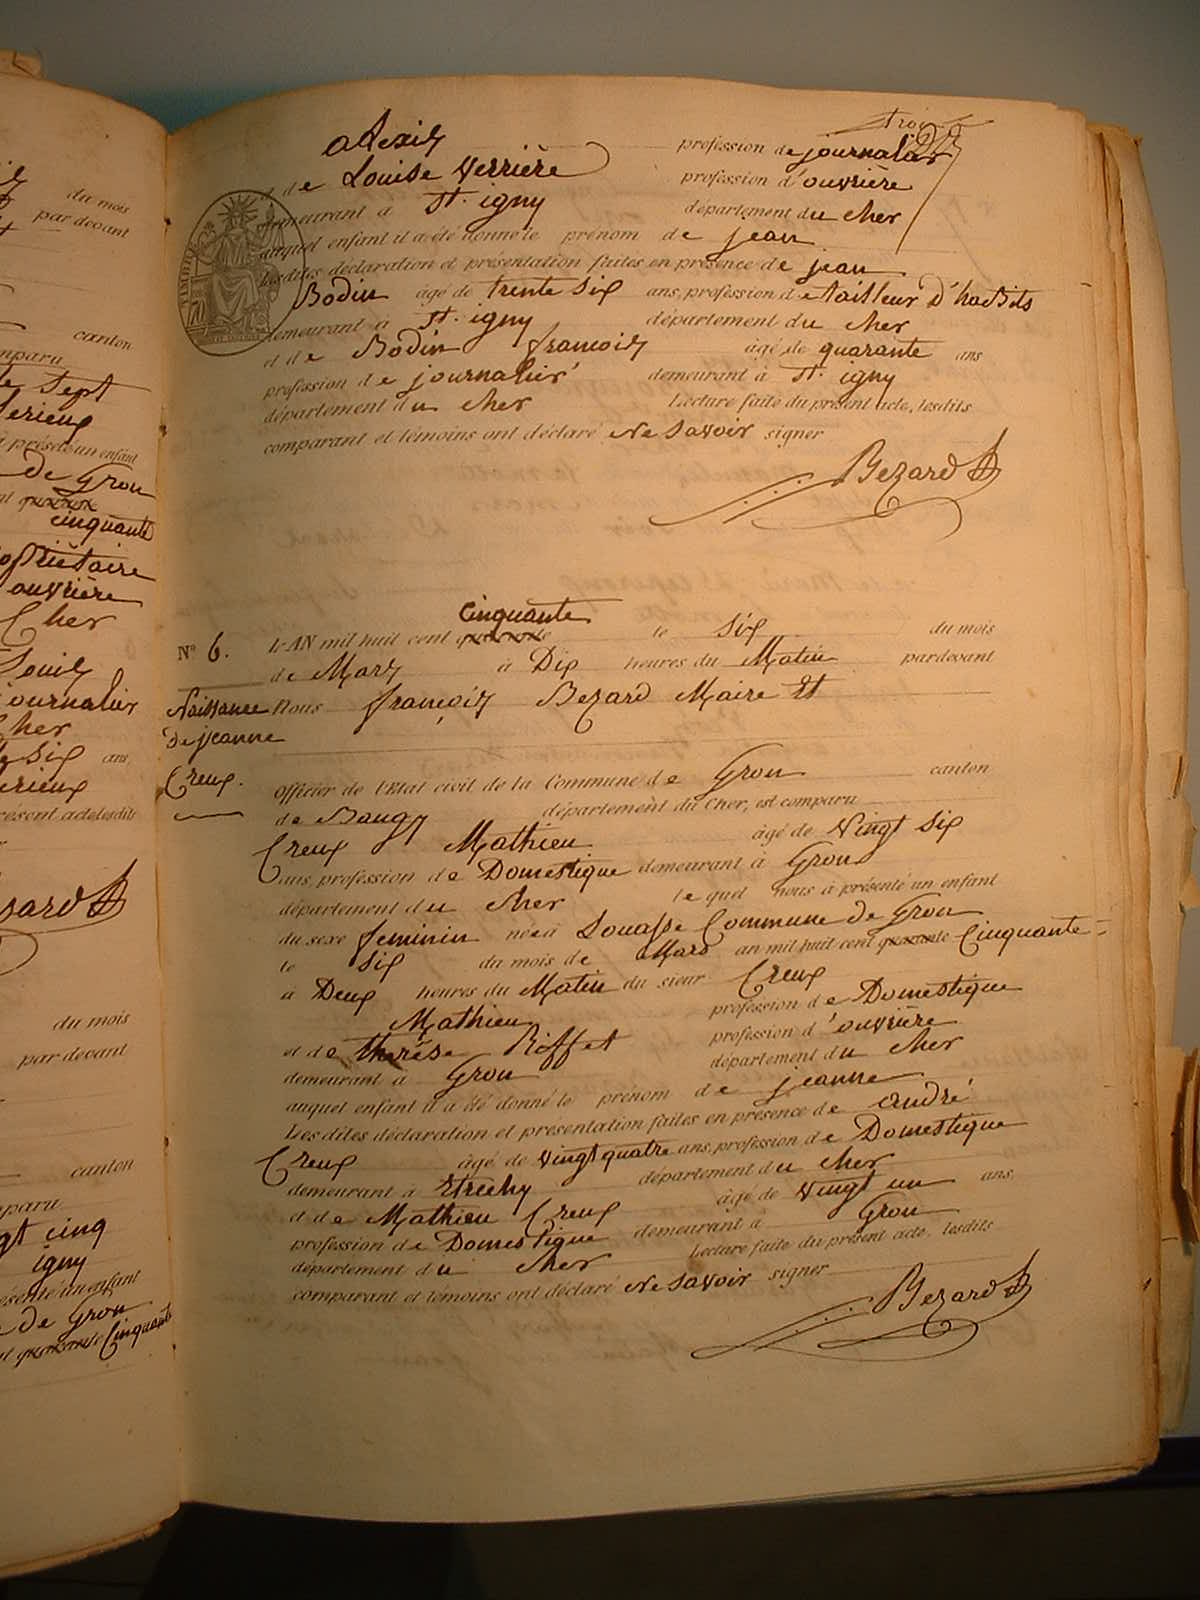 trois
alexis profession de journalier
et de Louise Verrière profession d'ouvrière
demeurant à St. igny département du cher
auquel enfant il a été donné le prénom de jean
lesdites déclaration et présentation faites en présence de jean
Bodin âgé de trente six ans, profession de tailleur d'habits
demeurant à St. igny département du cher
et de Bodin francois âgé de quarante ans
profession de journalier demeurant à St. igny
département du cher Lecture faite du présent acte, lesdits
comparant et témoins ont déclaré Ne Savoir signer
Bezard
cinquante
N° 6. L'AN mil huit cent quarante le six du mois
de Mars à Dix heures du Matin pardevant
Naissance Nous françois Bezard Maire Et
De jeanne
Creux. Officier de l'Etat civil de la Commune de Gron canton
de Baugy département du Cher, est comparu
Creux Mathieu âgé de Vingt six
ans, profession de Domestique demeurant à Gron
département du cher le quel nous à présenté un enfant
du sexe feminin né à Souasse Commune de Gron
le six du mois de Mars an mil huit cent quarante Cinquante
à Deux heures du Matin du sieur Creux
Mathieu profession de Domestique
et de therèse Riffet profession d'ouvrière
demeurant à Gron département du cher
auquel enfant il a été donné le prénom de jeanne
Les dites déclaration et présentation faites en présence de andré
Creux âgé de vingt quatre ans, profession de Domestique
demeurant à Etrechy département du cher
et de Mathieu Creux âgé de vingt un ans,
profession de Domestique demeurant à Gron
département du cher Lecture faite du présent acte, lesdits
comparant et témoins ont déclaré Ne Savoir signer
Bezard